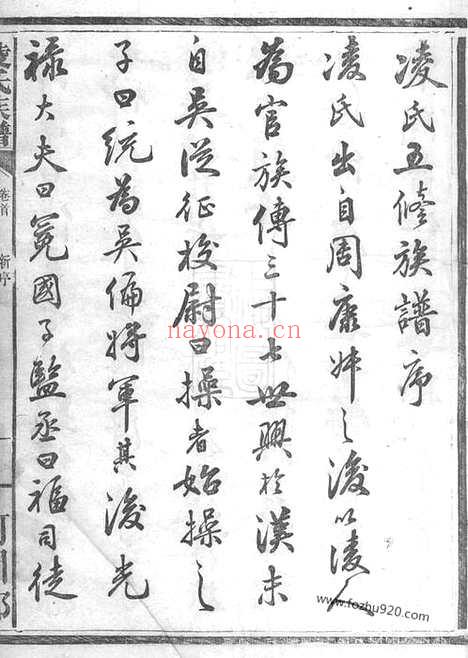 凌氏五修族譜序
凌氏出自周康叔之後以凌人
為官族傳三十七世興於漢末
自吳從征校尉曰操者始操之
子曰統為吳偏將軍其後光
祿大夫曰冕國子監丞曰福司徒
凌氏族譜
卷首
新序
河間郡
nayona.cn
www.fozhu920.com